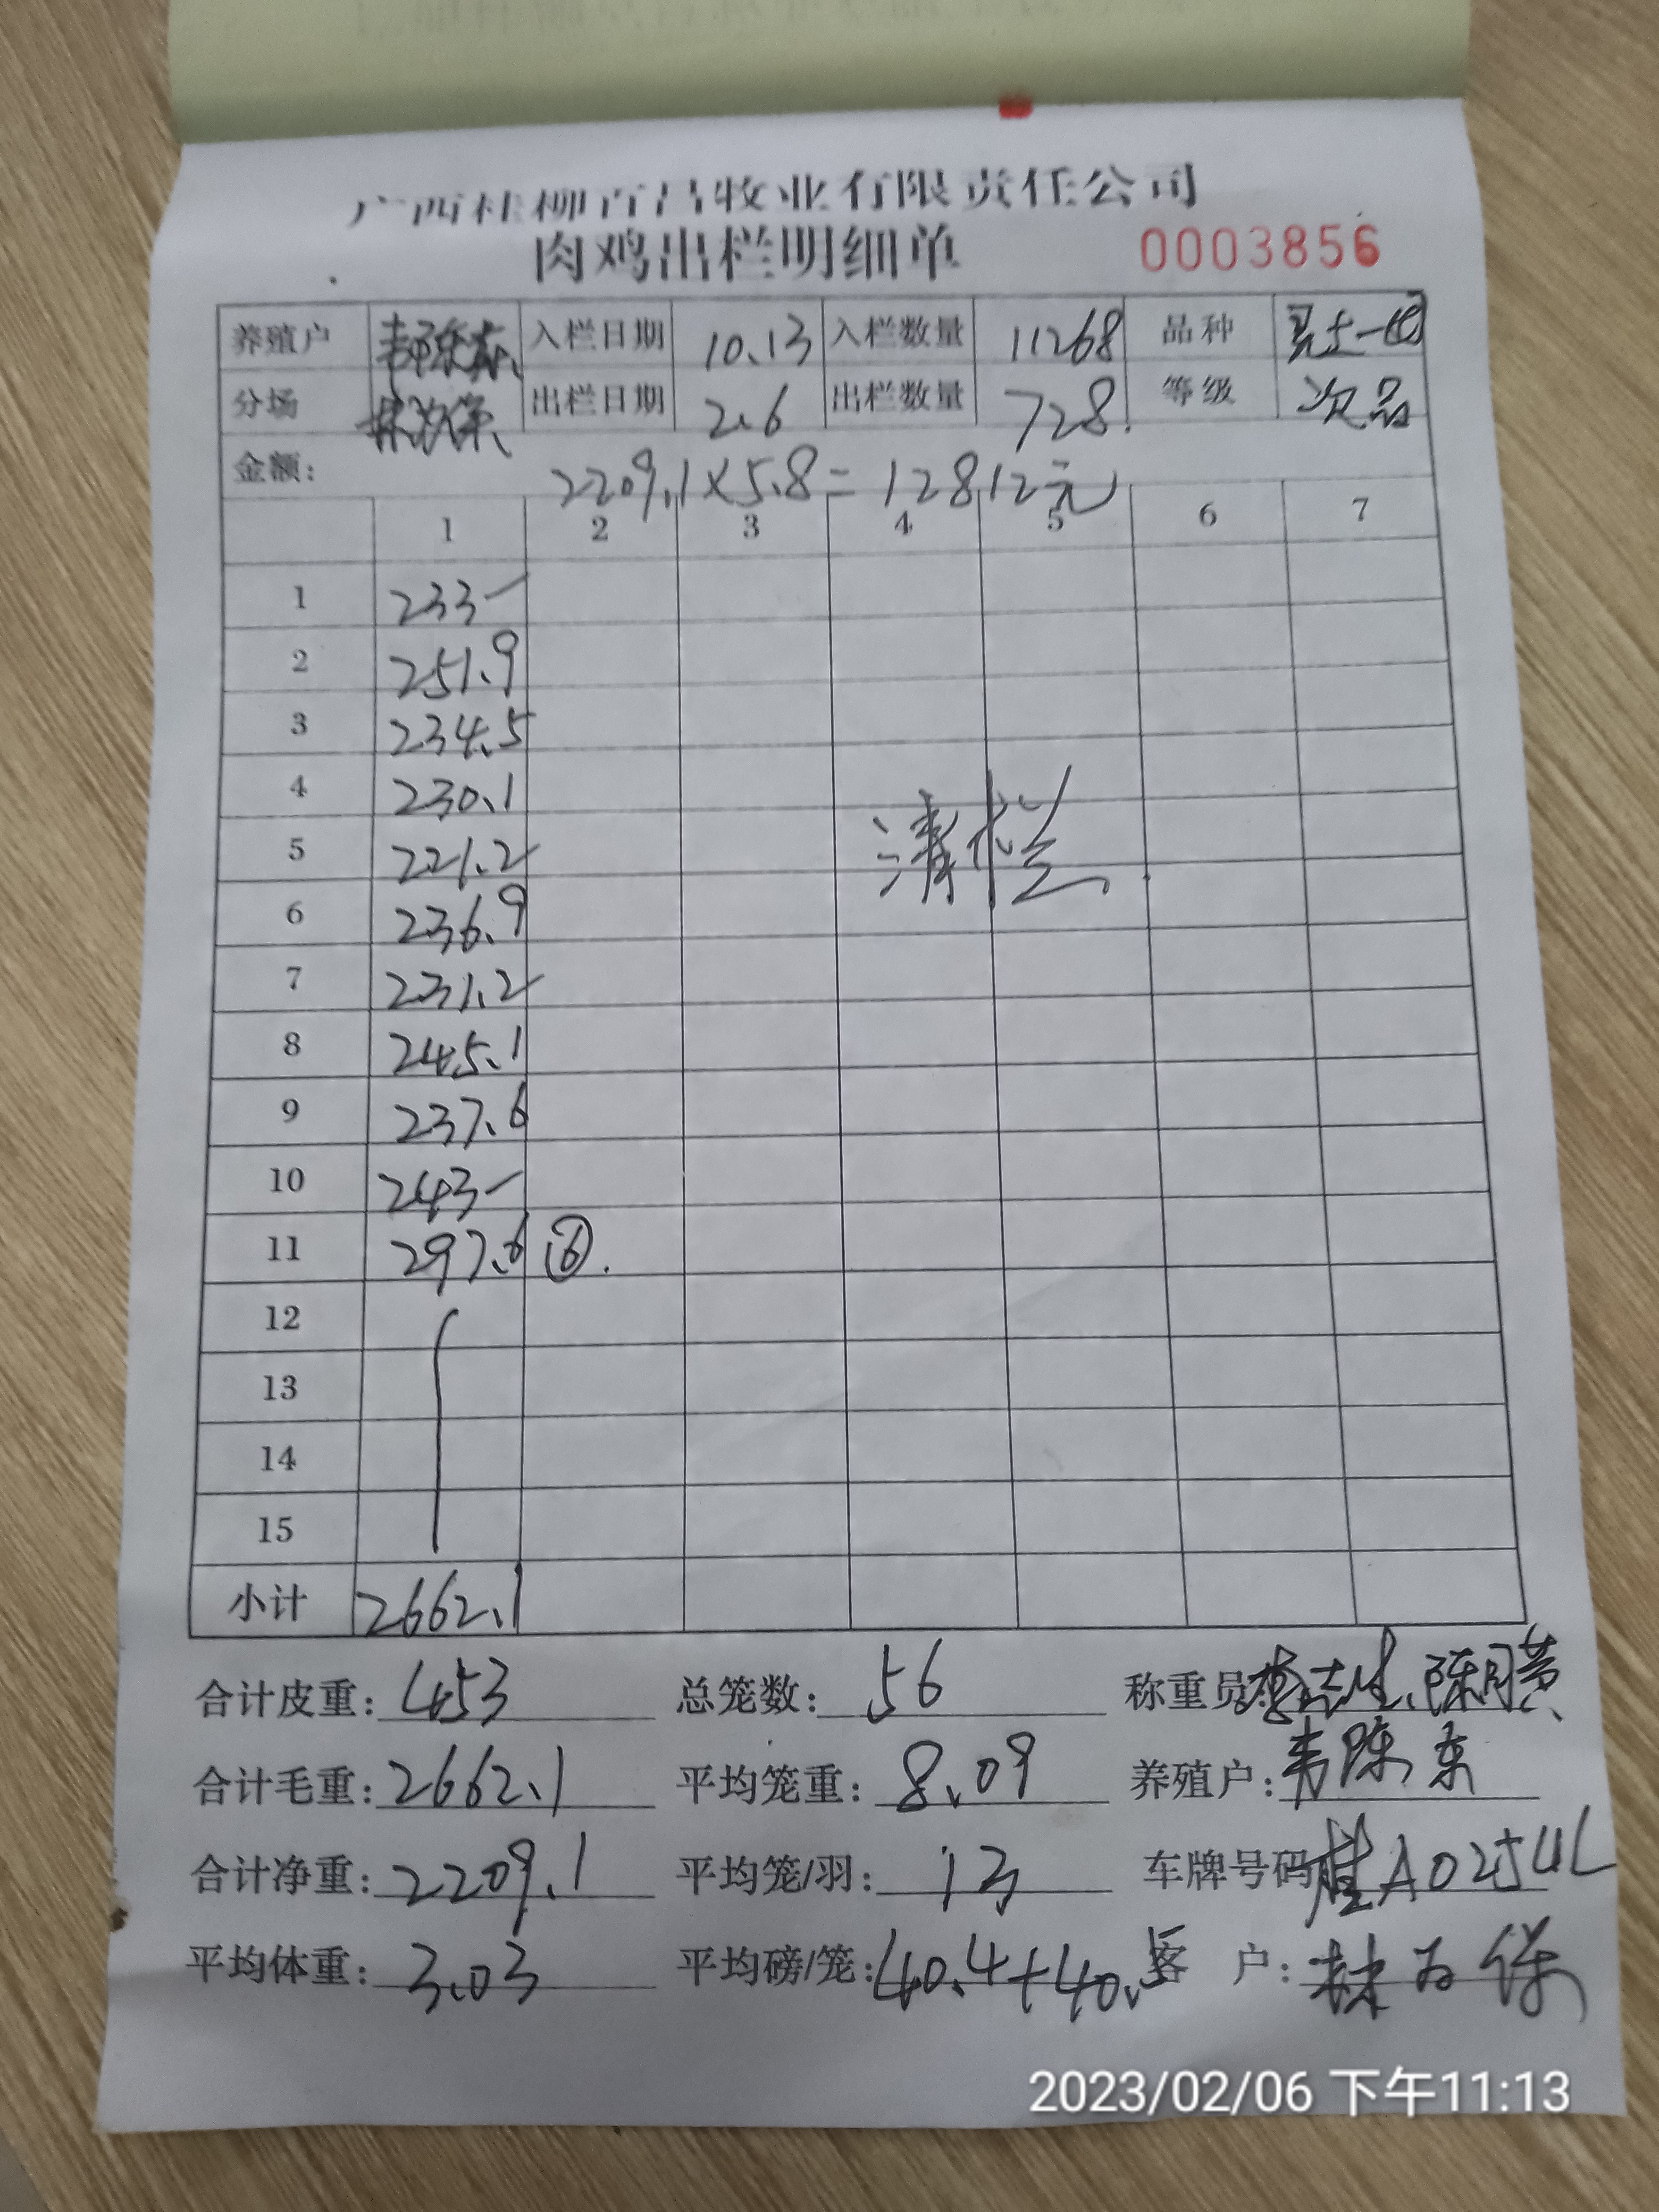 广西桂柳百昌牧业有限责任公司
肉鸡出栏明细单 0003856
养殖户 韦陈东 入栏日期 10.13 入栏数量 11268 品种
分场 出栏日期 2.6 出栏数量 728. 等级 次品
金额: 2209.1×5.8=12812元
1 2 3 4 5 6 7
1 233-
2 251.9
3 234.5
4 230.1
5 221.2
清栏
6 236.9
7 231.2
8 245.1
9 237.6
10 243-
11 297.6 ⑥.
12
13
14
15
小计 2662.1
合计皮重: 453 总笼数: 56 称重员
合计毛重: 2662.1 平均笼重: 8.09 养殖户: 韦陈东
合计净重: 2209.1 平均笼/羽: 13 车牌号码 桂A025UL
平均体重: 3.03 平均磅/笼: 40.4+40.5 客 户:
2023/02/06 下午11:13